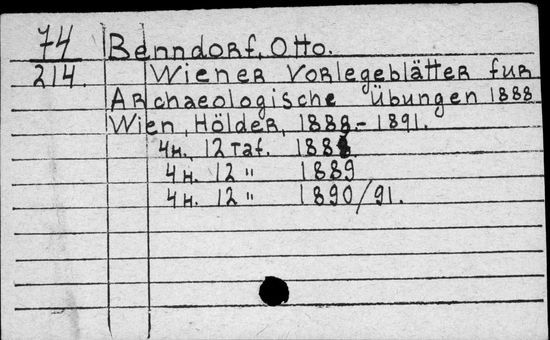 74 Benndorf, Otto.
214. Wiener Vorlegeblätter fur
Archaeologische Übungen 1888
Wien, Hölder, 1888.-1891.
4H. 12 Taf. 1888
4H. 12 " 1889
4H. 12 " 1890/91.